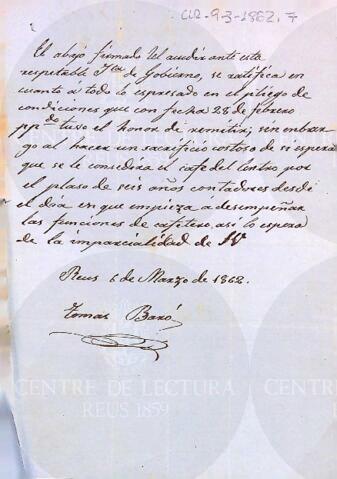 CLR-9-3-1862. 7
El abajo firmado del acudir ante esta
respetable Jta de Gobierno, se ratifica en
cuanto á todo lo espresado en el pliego de
condiciones que con fecha 28 de febrero
ppdo tuvo el honor de remitir; sin embar
go al hacer un sacrificio costoso de si espera
que se le considera el cafe del Centro por
el plaso de seis años contadores desde
el dia en que empieza á desempeñar
las funciones de cafetero, asi lo espera
de la imparcialidad de W
Reus 6 de Marzo de 1862.
Tomas Baró
CENTRE DE LECTURA
REUS 1859